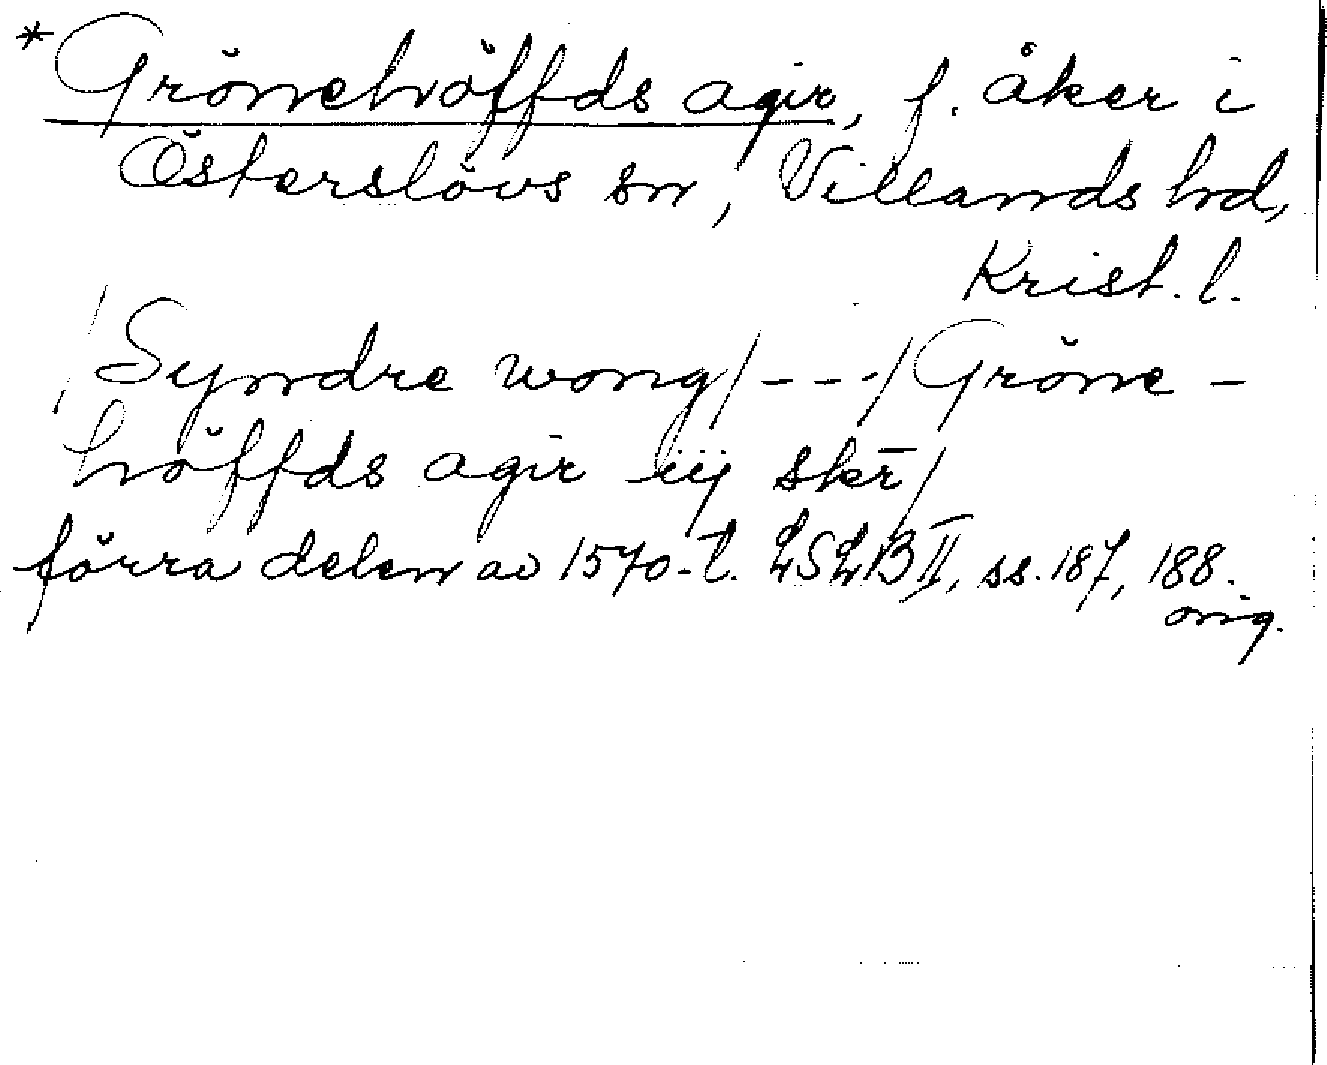 *Grönehöffds agir, f. åker i
Österslövs sn, Villands hd,
Krist. l.
/Syndre wong/---/Gröne-
höffds agir iij skr̄/
förra delen av 1570-t. LSLB II, ss. 187, 188.
orig.